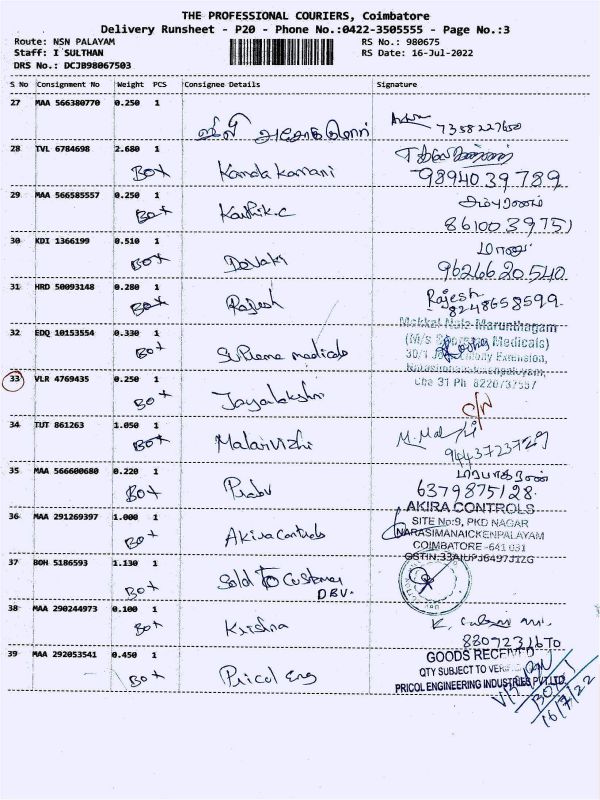 THE PROFESSIONAL COURIERS, Coimbatore
Delivery Runsheet - P20 - Phone No.:0422-3505555 - Page No.:3
Route: NSN PALAYAM RS No.: 980675
Staff: I SULTHAN RS Date: 16-Jul-2022
DRS No.: DCJB98067503
S No Consignment No Weight PCS Consignee Details Signature
27 MAA 566380770 0.250 1
7358227650
28 TVL 6784698 2.680 1
Box Kanda kamani
9894039789
29 MAA 566585557 0.250 1
Box Karthik.c
8610039751
30 KDI 1366199 0.510 1
Box Devaki
9626620540
31 HRD 50093148 0.280 1
Box Rajesh Rajesh
8248658599
Makkal Nala Marunthagam
32 EDQ 10153554 0.330 1
(M/s Medicals)
Box Supreme medicals
30/1 Extension,
33 VLR 4769435 0.250 1
Cbe 31 Ph 8220737557
Box Jayalakshmi
C/N
34 TUT 861263 1.050 1
Box Malarvizhi
9443723729
35 MAA 566600680 0.220 1
Box Prabu
6379875128
36 MAA 291269397 1.000 1
Box Akira Controls
AKIRA CONTROLS
SITE No:9, PKD NAGAR
NARASIMANAICKENPALAYAM
COIMBATORE -641 031
37 BOH 5186593 1.130 1
Box Sold To Customer
DBV.
38 MAA 290244973 0.100 1
Box Krishna
8807231670
39 MAA 292053541 0.450 1
Box Pricol Eng
GOODS RECEIVED
QTY SUBJECT TO
PRICOL ENGINEERING INDUSTRIES PVT LTD
16/7/22